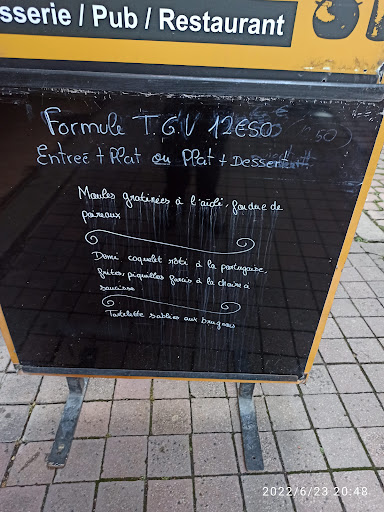 sserie / Pub / Restaurant
Formule T.G.V 12€50
Entreé + Plat ou Plat + Dessert
Moules gratinées à l'aïoli, fondue de
poireaux
Demi coquelet rôti à la portugaise,
frites, piquillos farcis à la chaire à
saucisse
Tartelette sablées aux brugnons
2022/6/23 20:48